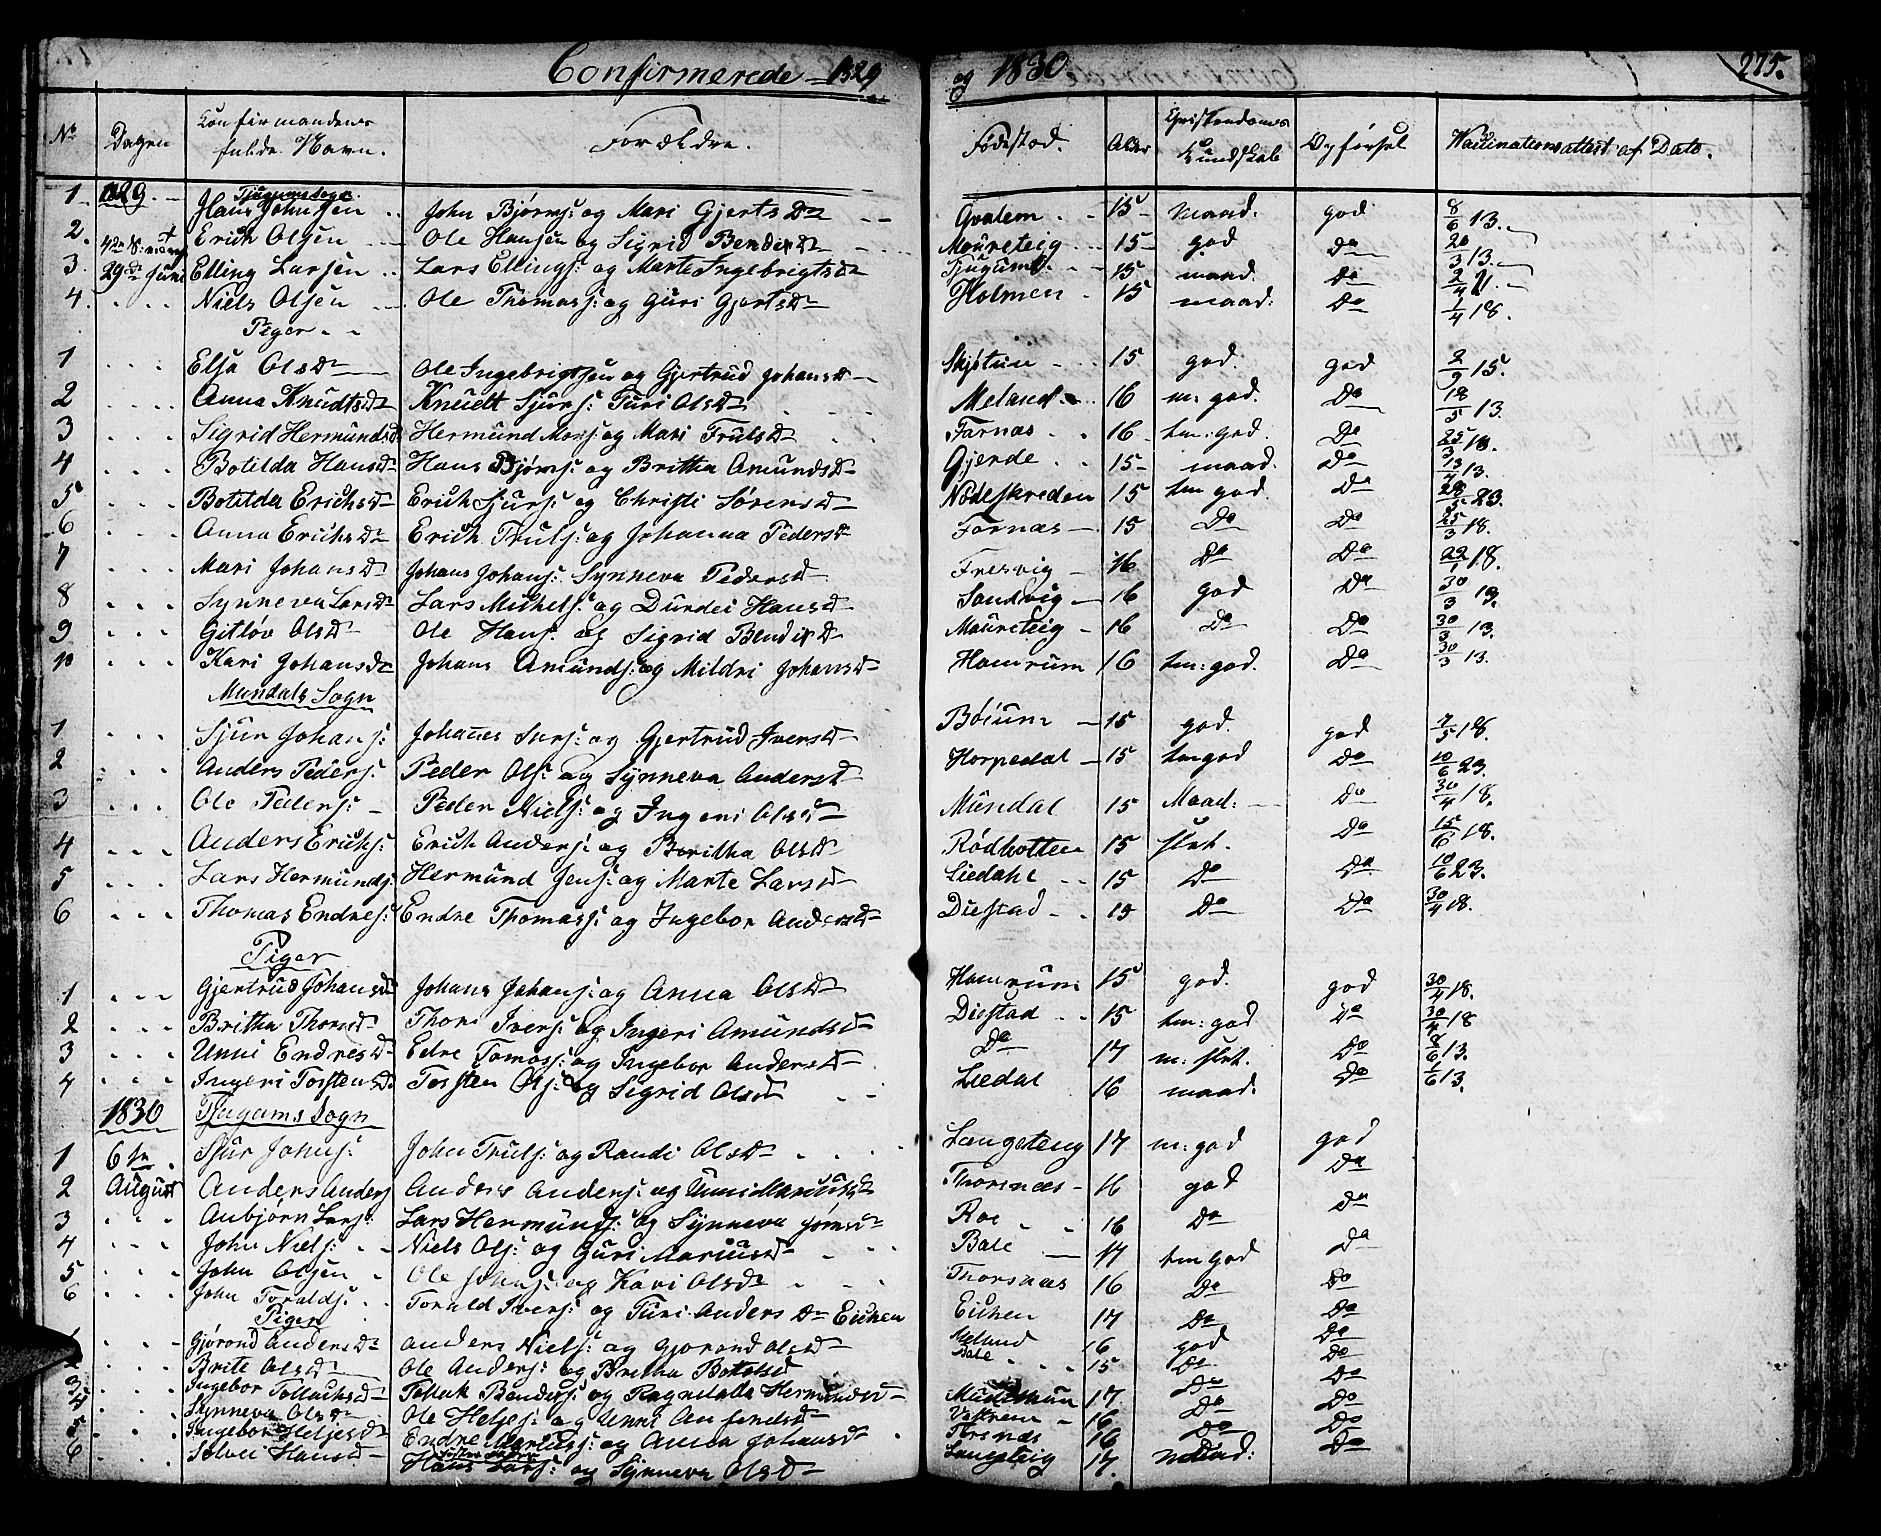 Confirmerede 1829 og 1830 275.
No Dagen Confirmandens fulde Navn. Forældre. Fødestad. Alder Christendoms Kundskab Opførsel Vaccinationsattest af Dato.
Tjugums Sogn
1 1829 Hans Johnsen John Bjørns: og Mari Gjertsdr Gvalem 15 maad. god 8/6 13.
2. Erich Olsen Ole Hansen og Sigrid Bendixdr Maureteig 15 god Do 20/3 13.
3. 29de Juni Elling Larsen Lars Ellings: og Marte Ingebrigtsdr Tjugum 15 maad. Do 2/4
4. Niels Olsen Ole Thomass: og Guri Gjertsdr Holmen 15 maad: Do 1/4 18.
Piger
1 Elsa Olsdr Ole Ingebrigtsen og Gjertrud Johansdr 15 god. god 2/9 15.
2 Anna Knudtsdr Knudt Sjurs: Turi Olsdr Meland 16 m: god. Do 18/5 13.
3 Sigrid Hermundsd Hermund Mons: og Mari Trulsdr Farnæs 16 tm: god. Do 25/3 18.
4 Botilda Hansdr Hans Bjørns: og Britha Amundsdr Gjerde 15 maad. Do 13/4 13.
5 Botilda Erichsdr Erich Sjurs: og Christi Sørensdr Nødeskreden 15 tm god. Do 23.
6 Anna Erichsdr Erich Truls: og Johanna Pedersdr Farnæs 15 Do Do 25/3 18.
7 Mari Johansdr Johans Johans: Synneva Pedersdr Fresvig 16 Do Do 22/1 18.
8 Synneva Larsdr Lars Michels: og Durdei Hansdr Sandvig 16 god Do 30/3 13.
9 Gitløv Olsdr Ole Hans: og Sigrid Bendixdr Maureteig 16 Do Do 30/3 13.
10 Kari Johansdr Johans Amunds: og Mildri Johansdr Hamrum 16 tm: god. Do 30/3 13.
Mundals Sogn
1 Sjur Johans: Johanes Surs: og Gjertrud Iversdr Bøium 15 god. god 7/5 18.
2 Anders Peders: Peder Ols: og Synneva Andersdr Horpedal 15 tm god Do 10/6 23.
3 Ole Peders: Peder Niels: og Ingeri Olsdr Mundal 15 Maad: Do 30/4 18.
4 Anders Erichs: Erich Anders: og Beritha Olsdr Rødbotten 15 slet. Do 15/6 18.
5 Lars Hermunds: Hermund Jens: og Marte Larsdr Liedahl 15 Do Do 10/6 23.
6 Thomas Endres: Endre Thomass: og Ingebor Andersdr Distad 15 Do Do 30/4 18.
Piger
1 Gjertrud Johansdr Johans Johans: og Anna Olsdr Hamrum 15 god. god 30/4 18.
2 Britha Thorsdr Thor Ivers: og Ingeri Amundsdr Distad 15 tm: god Do 30/4 18
3 Unni Endresdr Edre Tomass: og Ingebor Andersdr Do 17 m: slet. Do 8/6 13.
4 Ingeri Torstensdr Torsten Ols: og Sigrid Olsdr Liedal 16 maad: Do 1/6 13.
1830 Tjugums Sogn
1 6te Sjur Johns: John Truls: og Randi Olsdr Langeteig 17 m: god god
2 August Anders Anders Anders Anders: og Unni Mariusdr Thorsnæs 16 god Do
3 Anbjørn Lars: Lars Hermunds: og Synneva Roe 16 Do Do
4 John Niels: Niels Ols: og Guri Mariusdr Bale 17 tm god Do
5 John Olsen Ole Johns: og Kari Olsdr Thorsnæs 16 Do Do
6 John Toralds: Torald Ivers: og Turi Andersdr Eichen Eichen 17 Do Do
Piger
1 Gjørond Andersdr Anders Niels: og Gjørond Olsdr Melland 16 god Do
2 Brite Olsdr Ole Anders: og Britha Botolsd Bale 15 Do Do
3 Ingebor Tollachsdr Tollak Benders: og Ragnilda Hermundsd 17 Do Do
4 Synneva Olsdr Ole Heljes: og Unni Anfindsdr 16 Do Do
5 Ingebor Heljesdr Endre Mariuss: og Anna Johansdr 16 Do Do
6 Solvei Hansdr Hans Lars: og Synneva Olsdr Langeteig 17. maad: Do